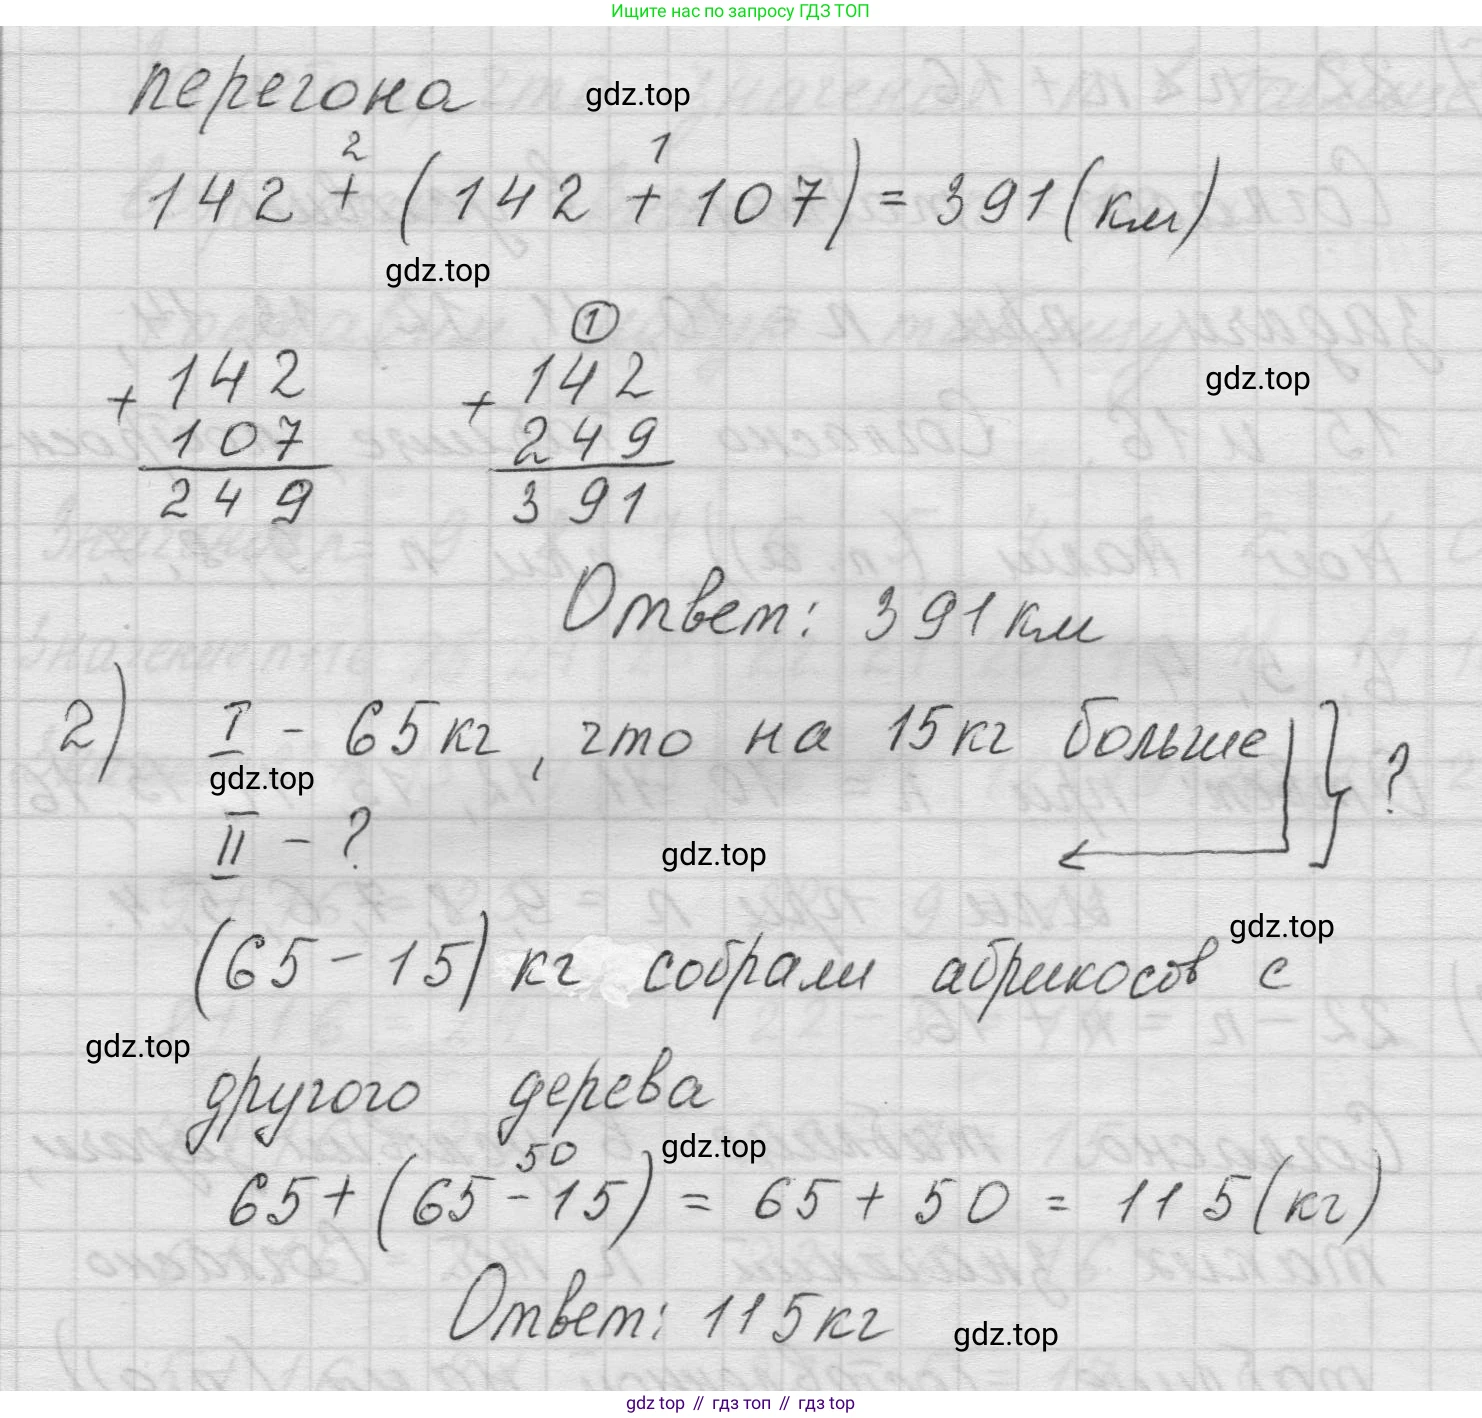 Ищите нас по запросу ГДЗ ТОП
перегона
gdz.top
2 1
142 + (142 + 107) = 391 (км)
gdz.top
1
+ 142 + 142
gdz.top
107 249
249 391
Ответ: 391 км
2) I - 65 кг, что на 15 кг больше } ?
gdz.top
II - ?
gdz.top
gdz.top
(65 - 15) кг собрали абрикосов с
gdz.top
другого дерева
gdz.top
50
65 + (65 - 15) = 65 + 50 = 115 (кг)
Ответ: 115 кг
gdz.top
gdz top // гдз топ // гдз top